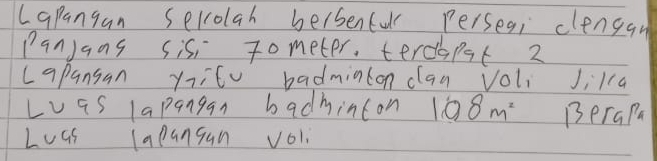 Lapangan sekolah berbentuk Persegi dengan
Panjang sisi 70 meter. terdapat 2
Lapangan yaitu badminton dan voli Jika
Luas lapangan badminton 108 m² Berapa
Luas lapangan voli